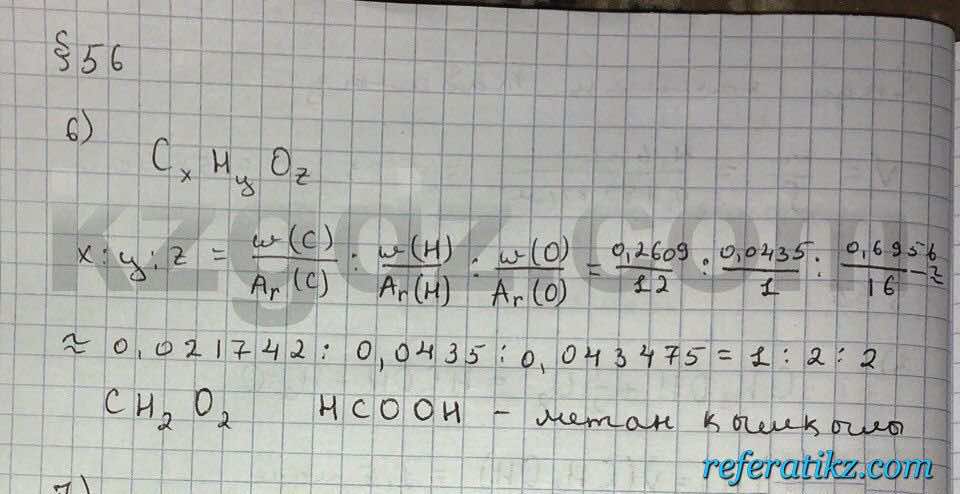 §56
6)
CxHyOz
x:y:z = w(C)/Ar(C) : w(H)/Ar(H) : w(O)/Ar(O) = 0,2609/12 : 0,0435/1 : 0,6956/16 =≈
≈ 0,021742 : 0,0435 : 0,043475 = 1 : 2 : 2
CH2O2 HCOOH – метан қышқылы
7)
kzgdz.com
referatikz.com